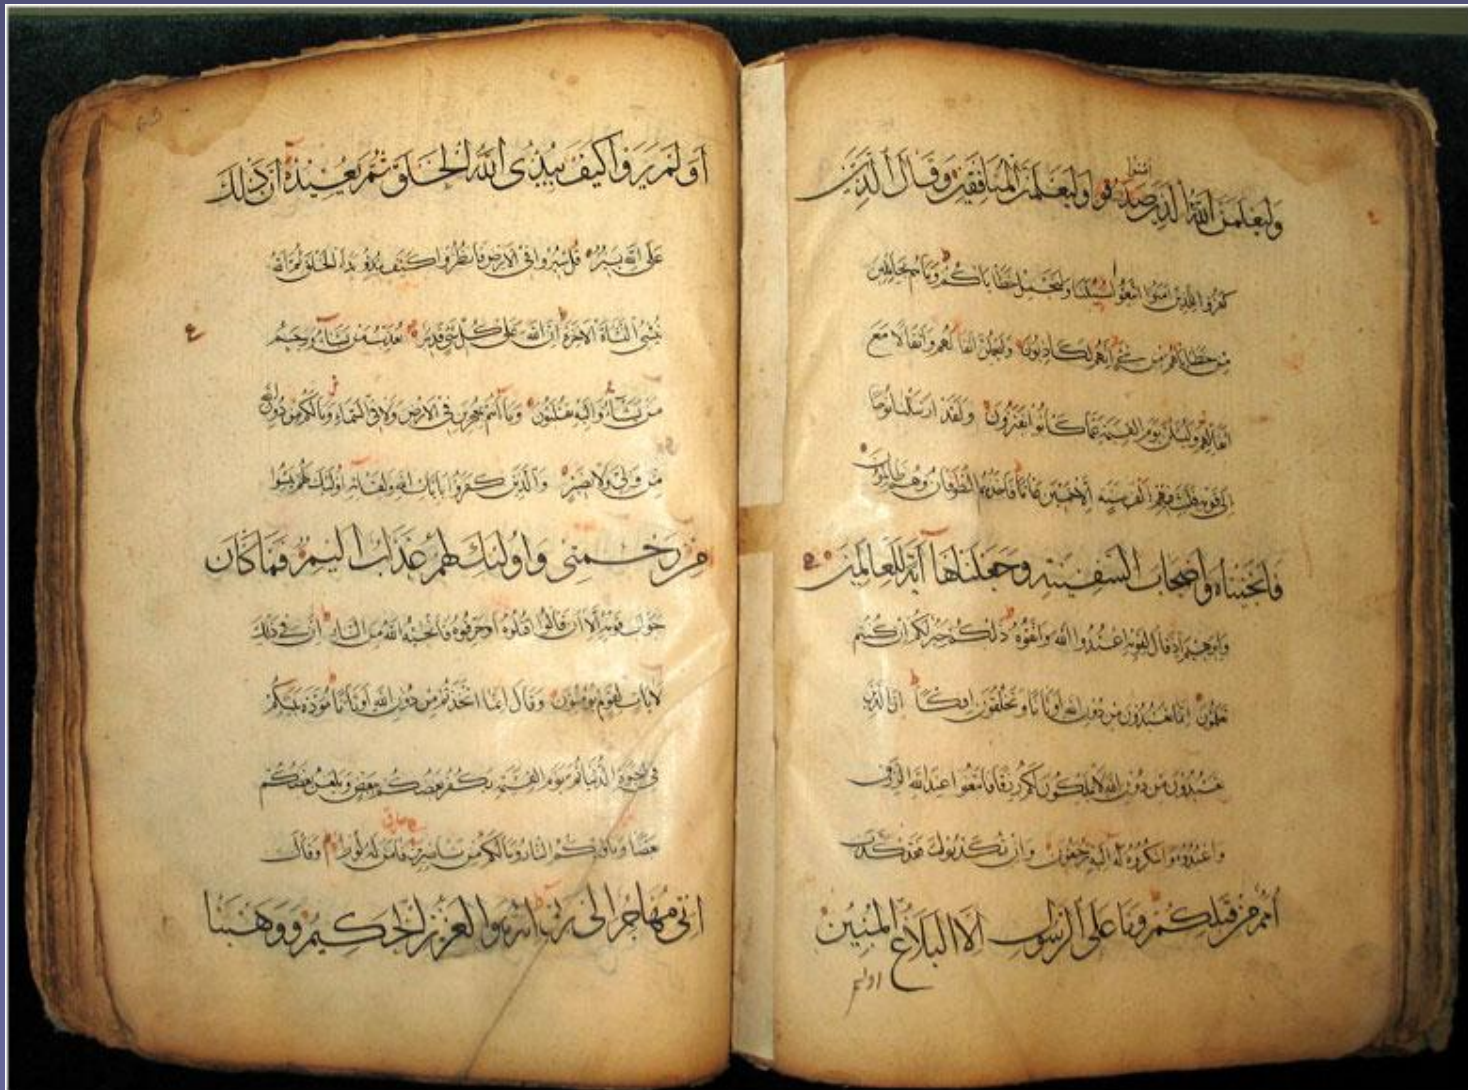 امنوا
وَلَيَعْلَمَنَّ اللَّهُ الَّذِينَ صَدَقُوا وَلَيَعْلَمَنَّ الْمُنَافِقِينَ وَقَالَ الَّذِينَ
كفروا للذين امنوا اتبعوا سبيلنا ولنحمل خطاياكم وما هم بحاملين
من خطاياهم من شئ انهم لكاذبون وليحملن اثقالهم واثقالا مع
اثقالهم وليسئلن يوم القيمة عما كانوا يفترون ولقد ارسلنا نوحا
الى قومه فلبث فيهم الف سنة الا خمسين عاما فاخذهم الطوفان وهم ظالمون
فانجيناه واصحاب السفينة وجعلناها آية للعالمين
وابرهيم اذ قال لقومه اعبدوا الله واتقوه ذلكم خير لكم ان كنتم
تعلمون انما تعبدون من دون الله اوثانا وتخلقون افكا ان الذين
تعبدون من دون الله لا يملكون لكم رزقا فابتغوا عند الله الرزق
واعبدوه واشكروا له اليه ترجعون وان تكذبوا فقد كذب
امم من قبلكم وما على الرسول الا البلاغ المبين
اولم
اولم يروا كيف يبدئ الله الخلق ثم يعيده ان ذلك
على الله يسير قل سيروا فى الارض فانظروا كيف بدأ الخلق ثم الله
ينشئ النشأة الاخرة ان الله على كل شئ قدير يعذب من يشاء ويرحم
من يشاء واليه تقلبون وما انتم بمعجزين فى الارض ولا فى السماء وما لكم من دون الله
من ولى ولا نصير والذين كفروا بايات الله ولقائه اولئك يئسوا
من رحمتى واولئك لهم عذاب اليم فما كان
جواب قومه الا ان قالوا اقتلوه او حرقوه فانجيه الله من النار ان فى ذلك
لايات لقوم يؤمنون وقال انما اتخذتم من دون الله اوثانا مودة بينكم
فى الحيوة الدنيا ثم يوم القيمة يكفر بعضكم ببعض ويلعن بعضكم
بعضا ومأويكم النار وما لكم من ناصرين فامن له لوط وقال
انى مهاجر الى ربى انه هو العزيز الحكيم ووهبنا